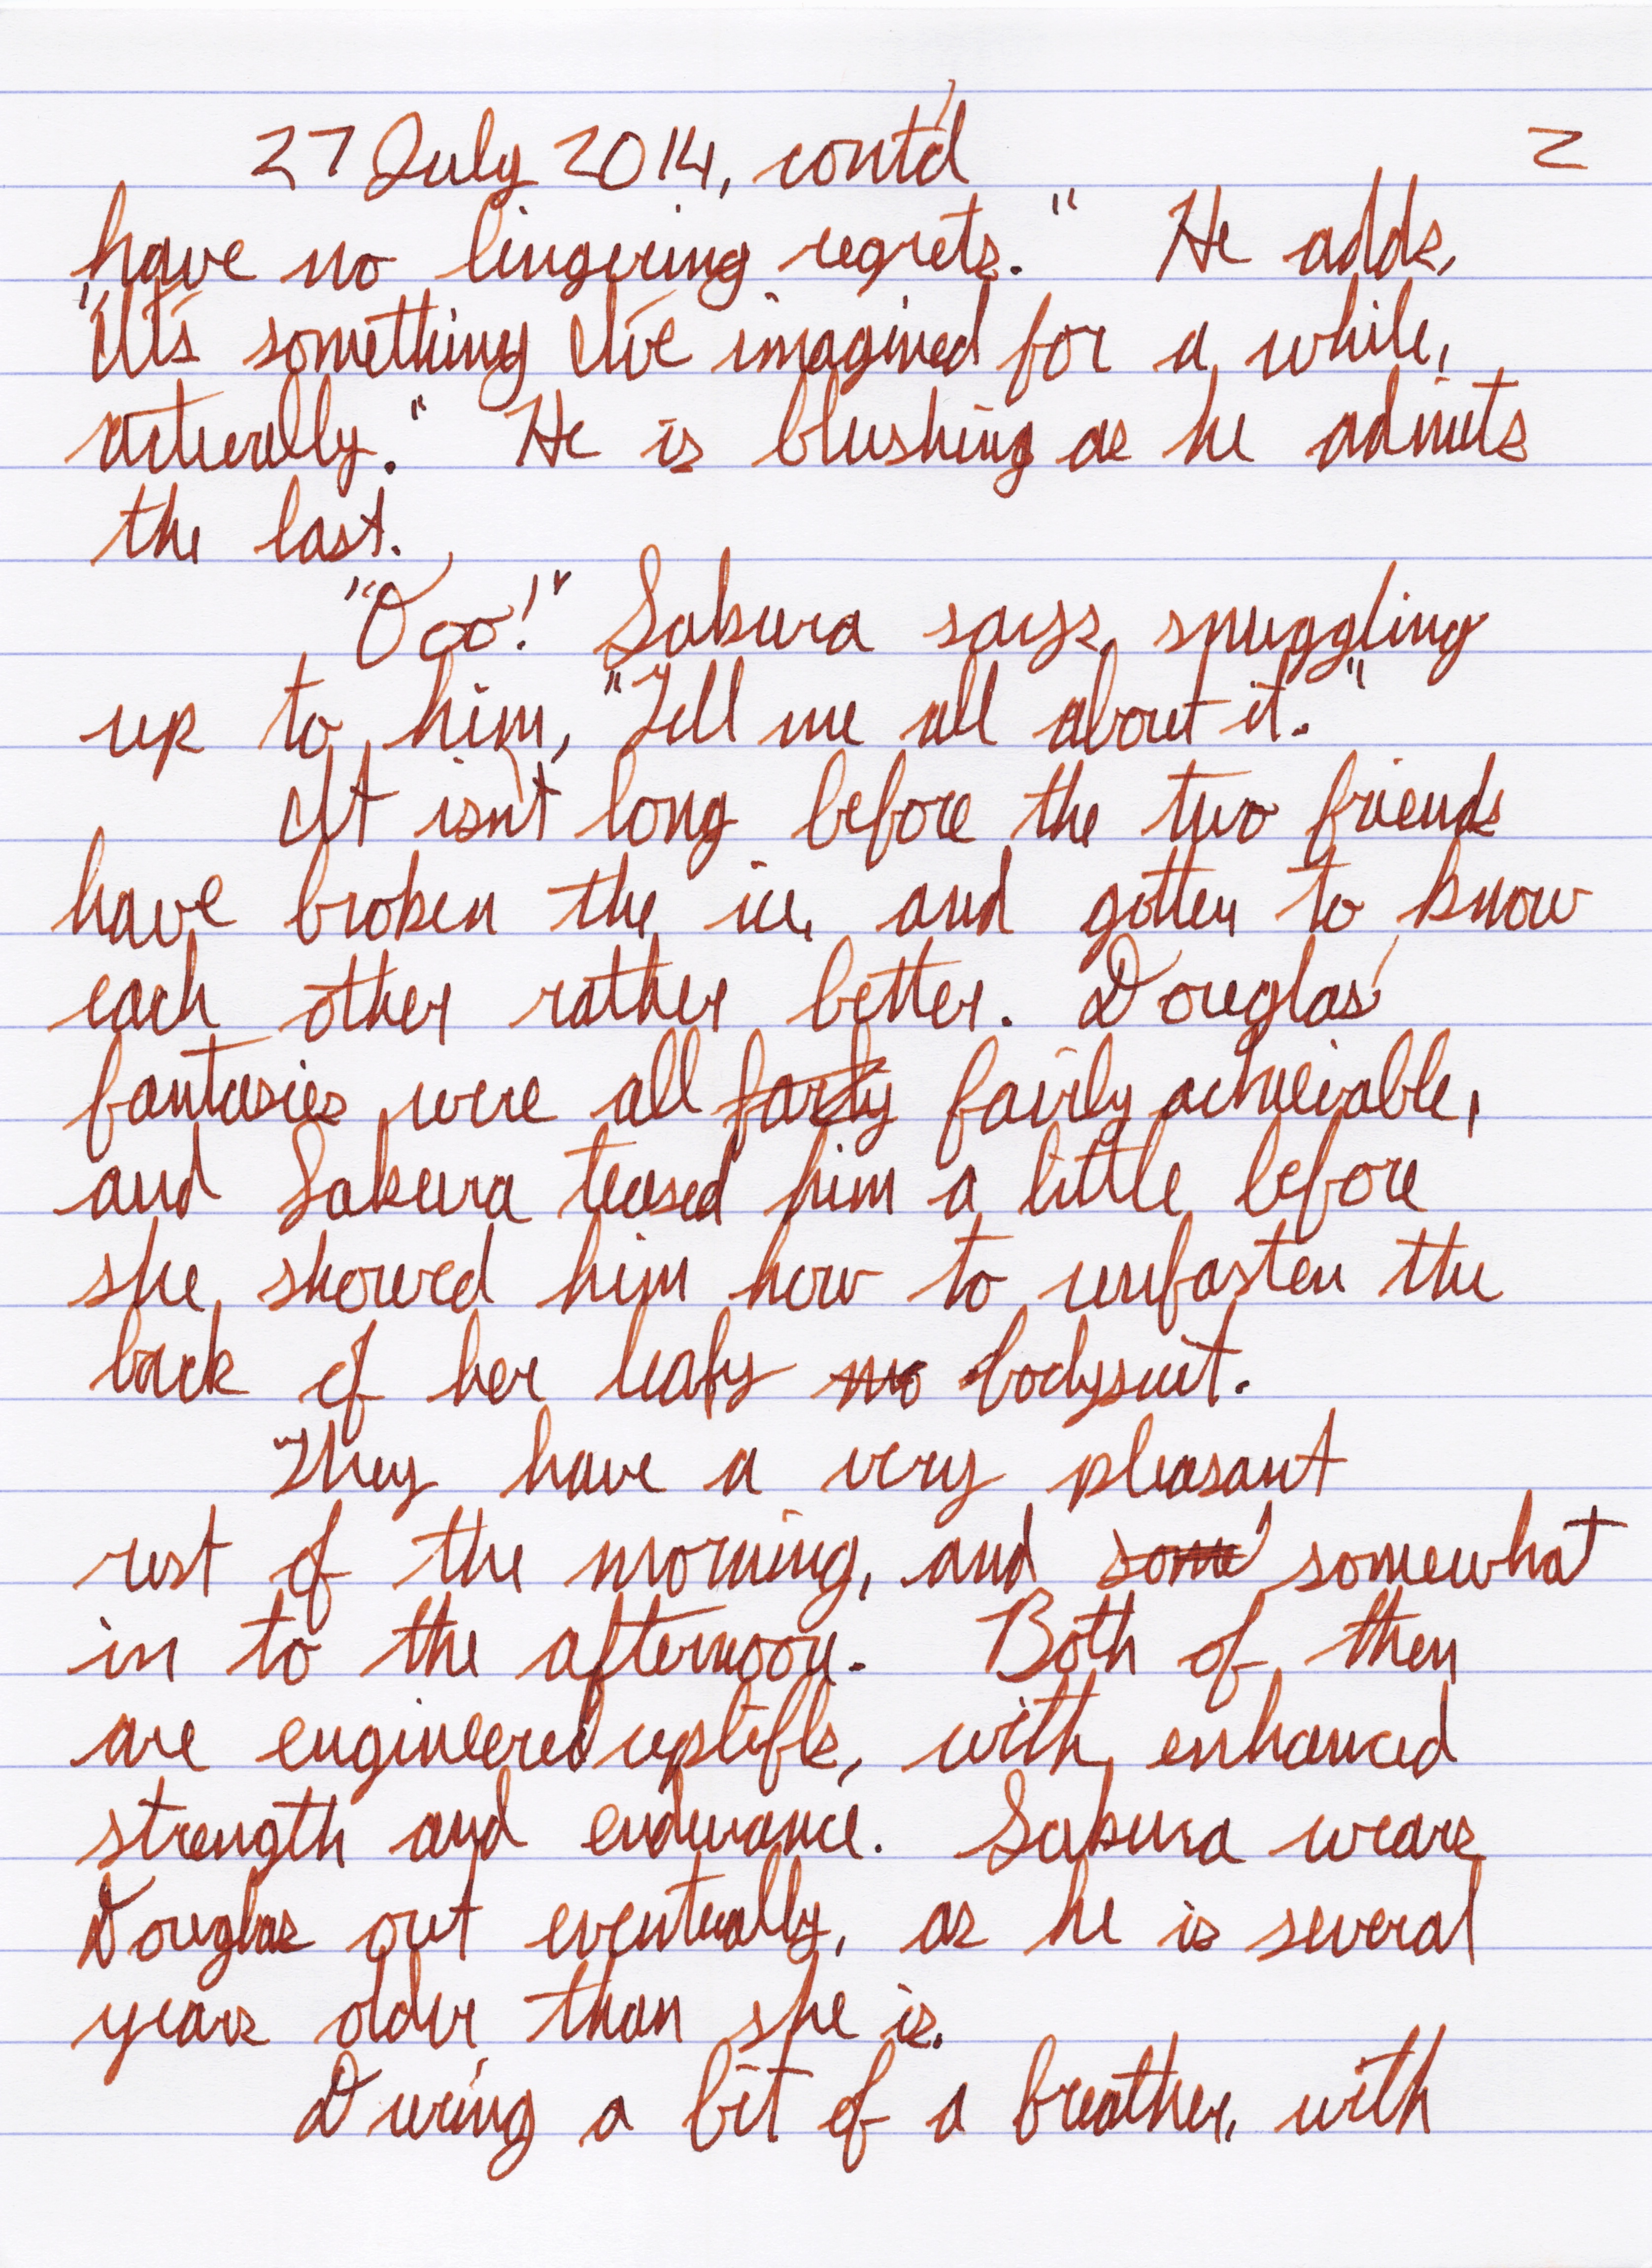 27 July 2014, cont'd 2
have no lingering regrets." He adds,
"It's something I've imagined for a while,
actually." He is blushing as he admits
the last.
"Ooo!" Sakura says, snuggling
up to him, "Tell me all about it."
It isn't long before the two friends
have broken the ice, and gotten to know
each other rather better. Douglas'
fantasies were all farly fairly achievable,
and Sakura teased him a little before
she showed him how to unfasten the
back of her leafy mo bodysuit.
They have a very pleasant
rest of the morning, and some somewhat
in to the afternoon. Both of them
are engineered uplifts, with enhanced
strength and endurance. Sakura wears
Douglas out eventually, as he is several
years older than she is.
During a bit of a breather, with